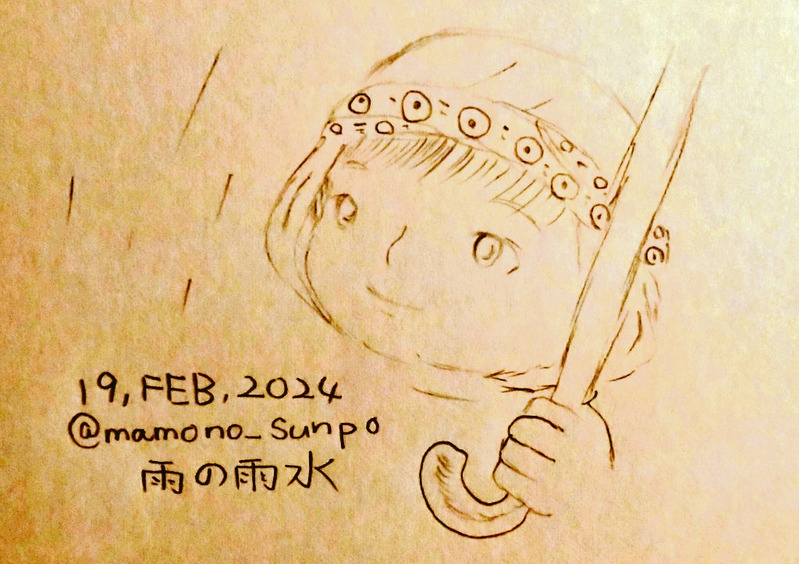 19, FEB, 2024
@mamono_sunpo
雨の雨水